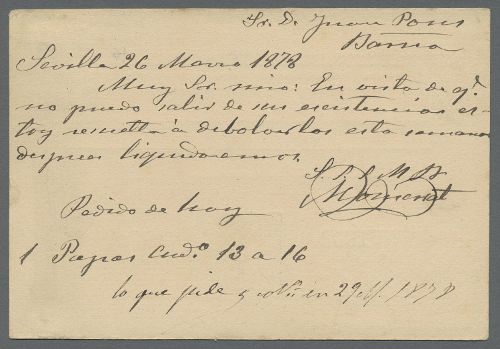 Sr. D. Juan Pons
Barna
Sevilla 26 Marzo 1878
Muy Sr. mio: En vista de qe.
no puedo salir de sus existencias es-
toy resuelto á debolverlos esta semana
despues liquidaremos.
S. S. S. M. B.
Pedido de hoy
1 Papas Cuado. 13 a 16
lo que pide y en 29 M. 1878